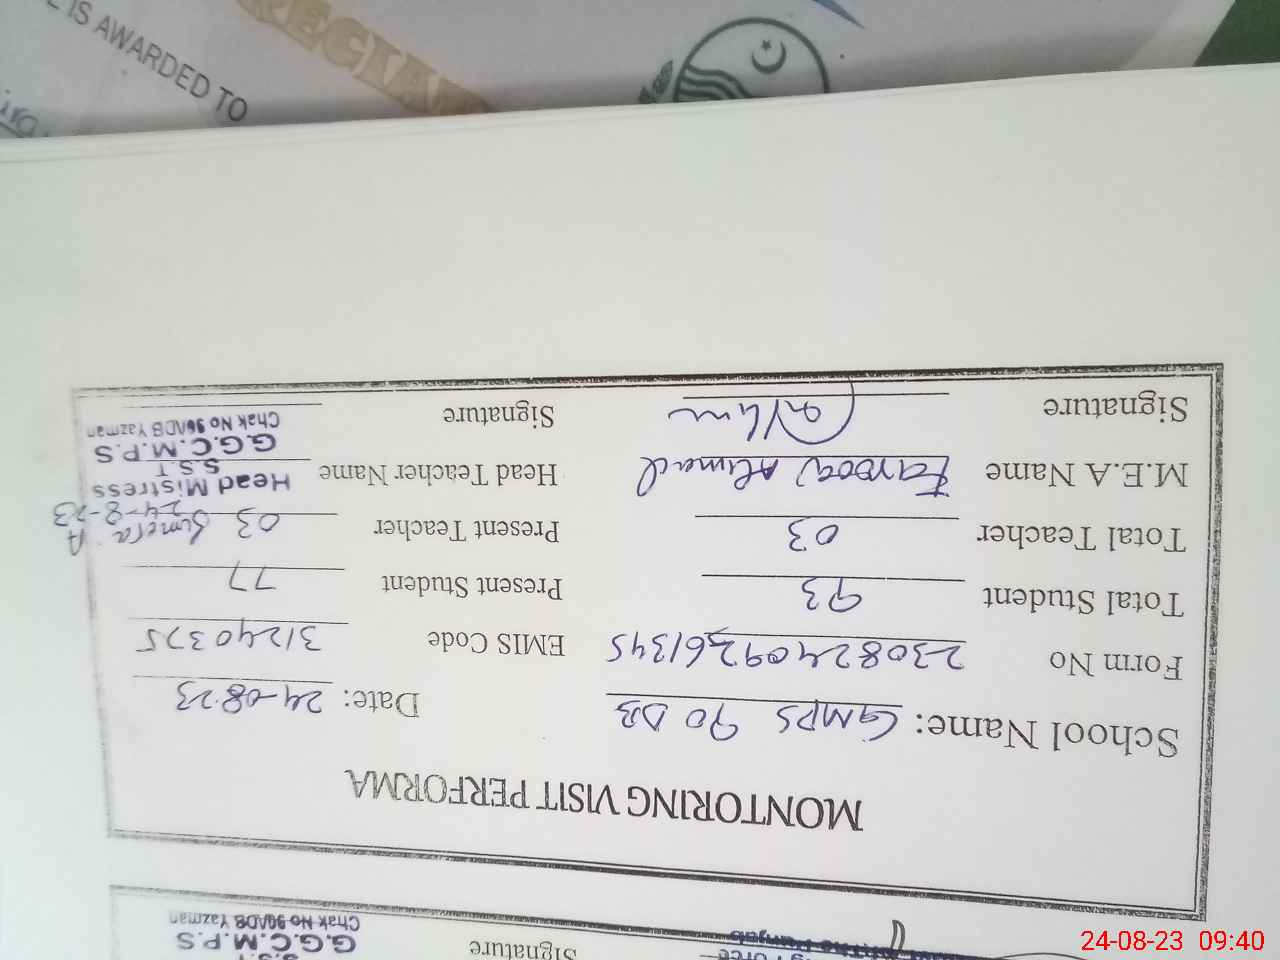 IS AWARDED TO
Signature
G.G.C.M.P.S
Chak No Yazman
MONTORING VISIT PERFORMA
School Name: GMPS 90 DB Date: 24-08-23
Form No 23082409261345 EMIS Code 31240375
Total Student 93 Present Student 77
Total Teacher 03 Present Teacher 03 Sumera
24-8-23
M.E.A Name Farooq Ahmad Head Teacher Name Head Mistress
S.S.T
G.G.C.M.P.S
Chak No Yazman
Signature Signature
24-08-23 09:40